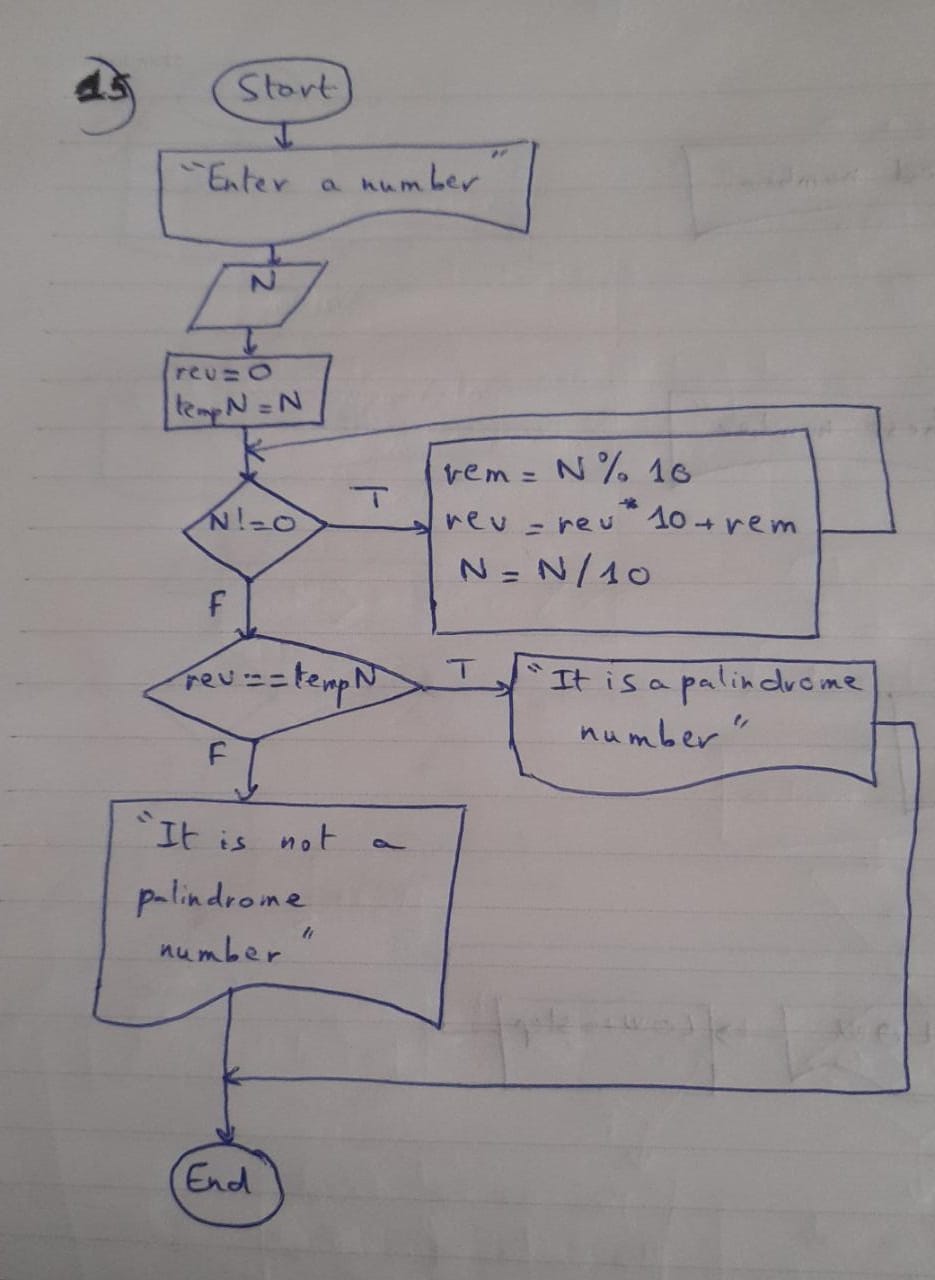 15)
Start
"Enter a number"
N
rev=0
tempN=N
N!=0
T
rem = N % 10
rev = rev * 10 + rem
N = N/10
F
rev==tempN
T
"It is a palindrome
number"
F
"It is not a
palindrome
number"
End